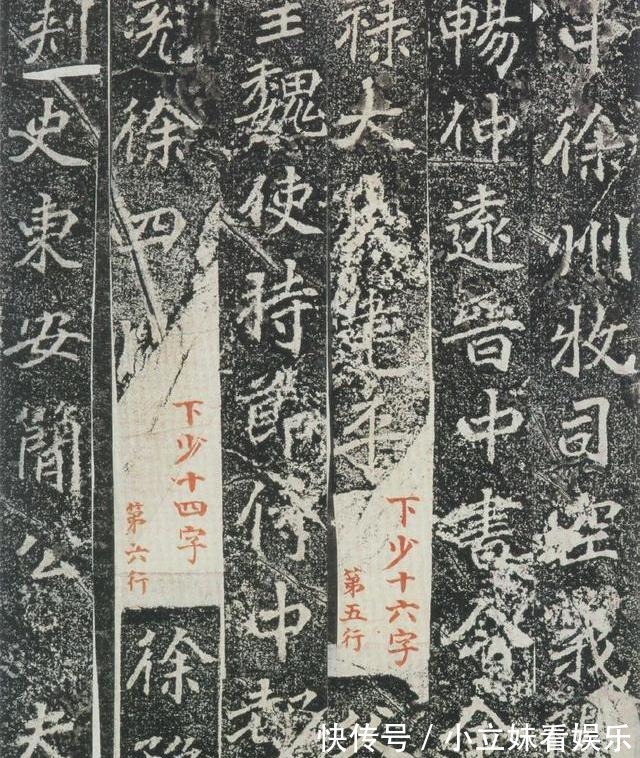 中徐州牧司空我
暢仲遠晉中書令
祿大
下少十六字
第五行
王魏使持節侍中都
兗徐四州
下少十四字
第六行
徐
刺史東安簡公夫
快传号 / 小立妹看娱乐